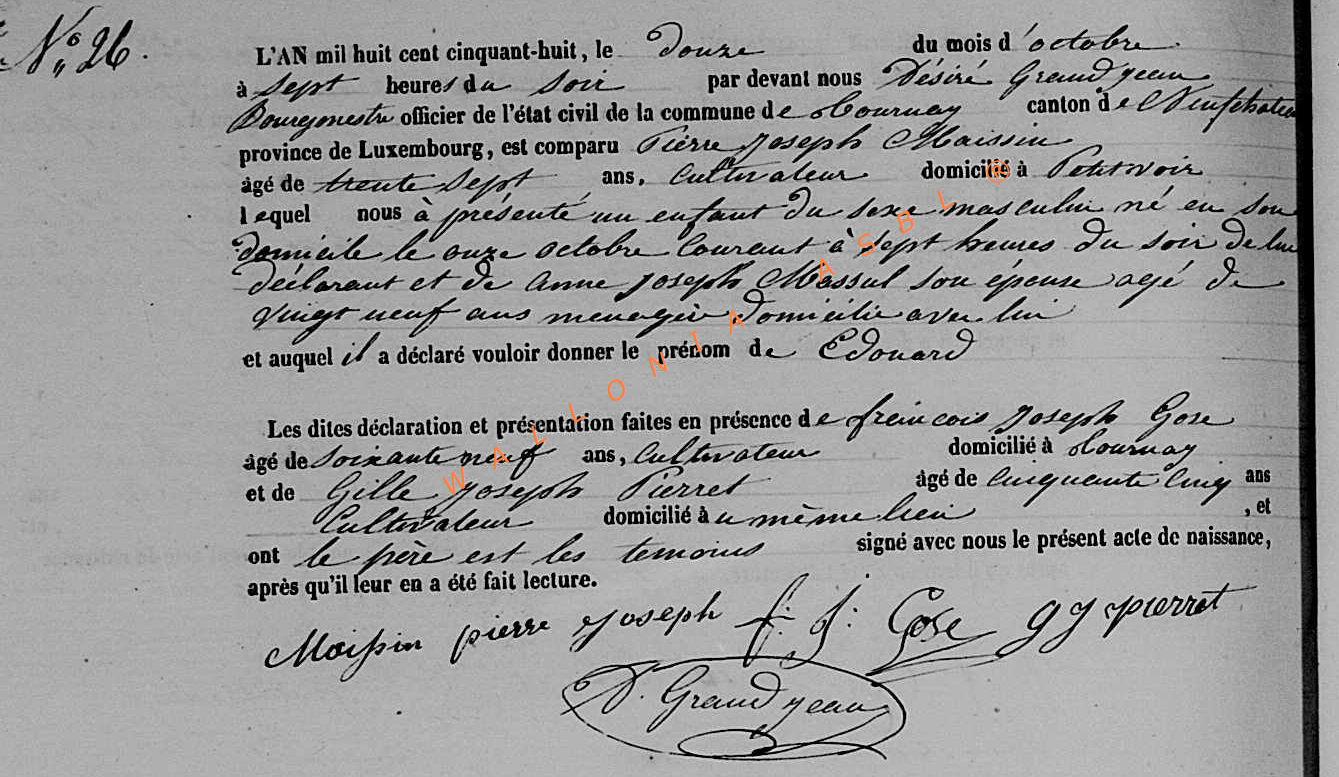 N° 26.
L'AN mil huit cent cinquant-huit, le douze du mois d'octobre
à sept heures du soir par devant nous Désiré Grandjean
Bourgmestre officier de l'état civil de la commune de Tournay canton de Neufchateau
province de Luxembourg, est comparu Pierre Joseph Maissin
âgé de trente sept ans, Cultivateur domicilié à Petitvoir
lequel nous à présenté un enfant du sexe masculin né en son
domicile le onze octobre Courant à sept heures du soir de lui
déclarant et de Anne Joseph Massul son épouse agé de
vingt neuf ans menagère domicilie avec lui
et auquel il a déclaré vouloir donner le prénom de Edouard
Les dites déclaration et présentation faites en présence de francois Joseph Gose
âgé de soixante neuf ans, Cultivateur domicilié à Tournay
et de Gille Joseph Pierret âgé de Cinquante Cinq ans
Cultivateur domicilié au même lieu , et
ont le père est les temoins signé avec nous le présent acte de naissance,
après qu'il leur en a été fait lecture.
Maissin pierre Joseph f. j. Gose g j pierret
D. Grandjean
WALLONIA ASBL ©